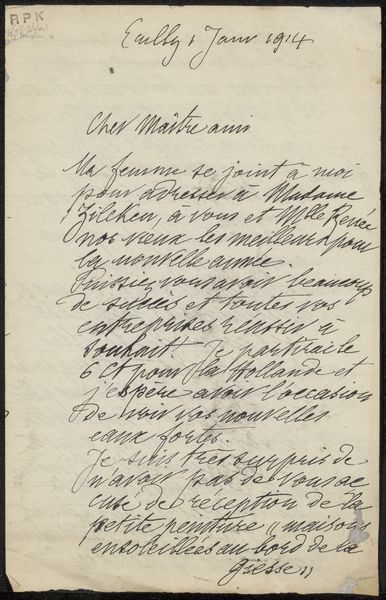 RPK
1 Janv 1914
Cher Maître ami
Ma femme se joint à moi
pour adresser à Madame
Zilcken, à vous et Mlle Renée
nos vœux les meilleurs pour
la nouvelle année.
Puissiez vous avoir beaucoup
de succès et toutes vos
entreprises réussir à
souhait. Je partirai le
6 ct pour la Hollande et
j'espère avoir l'occasion
de voir vos nouvelles
eaux fortes.
Je suis très surpris de
n'avoir pas de vous ac
cusé de réception de la
petite peinture "maisons
ensoleillées au bord de la